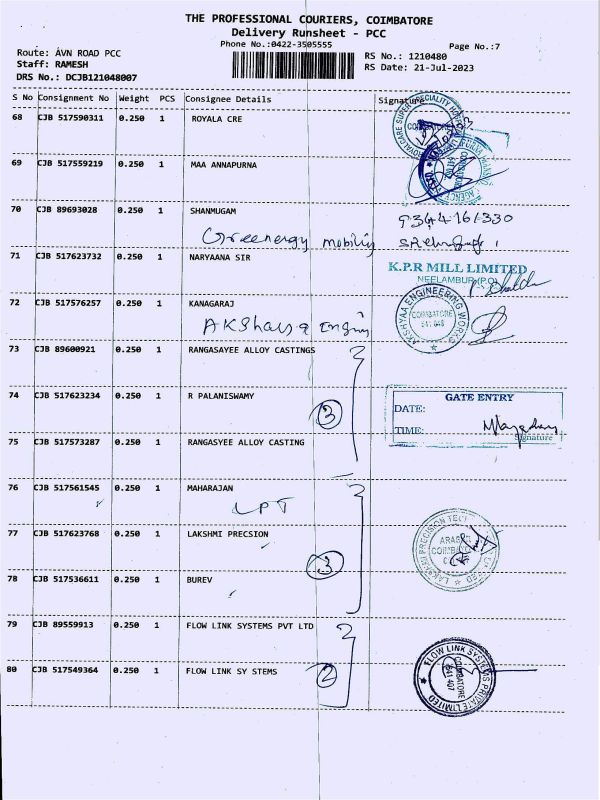 THE PROFESSIONAL COURIERS, COIMBATORE
Delivery Runsheet - PCC
Phone No.:0422-3505555
Page No.:7
Route: AVN ROAD PCC
RS No.: 1210480
Staff: RAMESH
RS Date: 21-Jul-2023
DRS No.: DCJB121048007
S No Consignment No Weight PCS Consignee Details Signature
68 CJB 517590311 0.250 1 ROYALA CRE
COIMBATORE
69 CJB 517559219 0.250 1 MAA ANNAPURNA
70 CJB 89693028 0.250 1 SHANMUGAM 9344161330
Greenergy mobility
71 CJB 517623732 0.250 1 NARYAANA SIR K.P.R MILL LIMITED
NEELAMBUR(P.O)
72 CJB 517576257 0.250 1 KANAGARAJ
AKSHAYAA ENGINEERING WORKS
COIMBATORE
641 048
73 CJB 89600921 0.250 1 RANGASAYEE ALLOY CASTINGS
74 CJB 517623234 0.250 1 R PALANISWAMY
3
GATE ENTRY
DATE:
TIME:
Signature
75 CJB 517573287 0.250 1 RANGASYEE ALLOY CASTING
76 CJB 517561545 0.250 1 MAHARAJAN
LPT
77 CJB 517623768 0.250 1 LAKSHMI PRECSION
3
LAKSHMI PRECISION
78 CJB 517536611 0.250 1 BUREV
79 CJB 89559913 0.250 1 FLOW LINK SYSTEMS PVT LTD
80 CJB 517549364 0.250 1 FLOW LINK SY STEMS
2
FLOW LINK SYSTEMS PRIVATE LIMITED
COIMBATORE
641 407